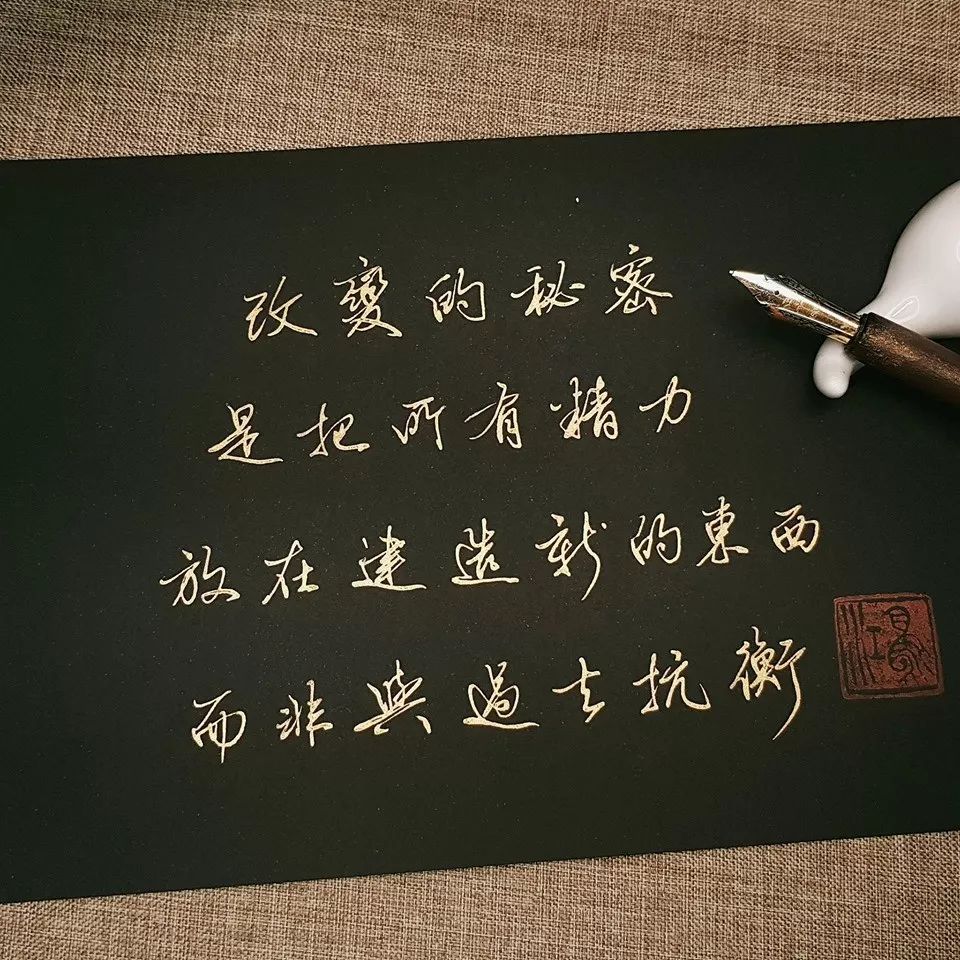 改變的秘密
是把所有精力
放在建造新的東西
而非與過去抗衡